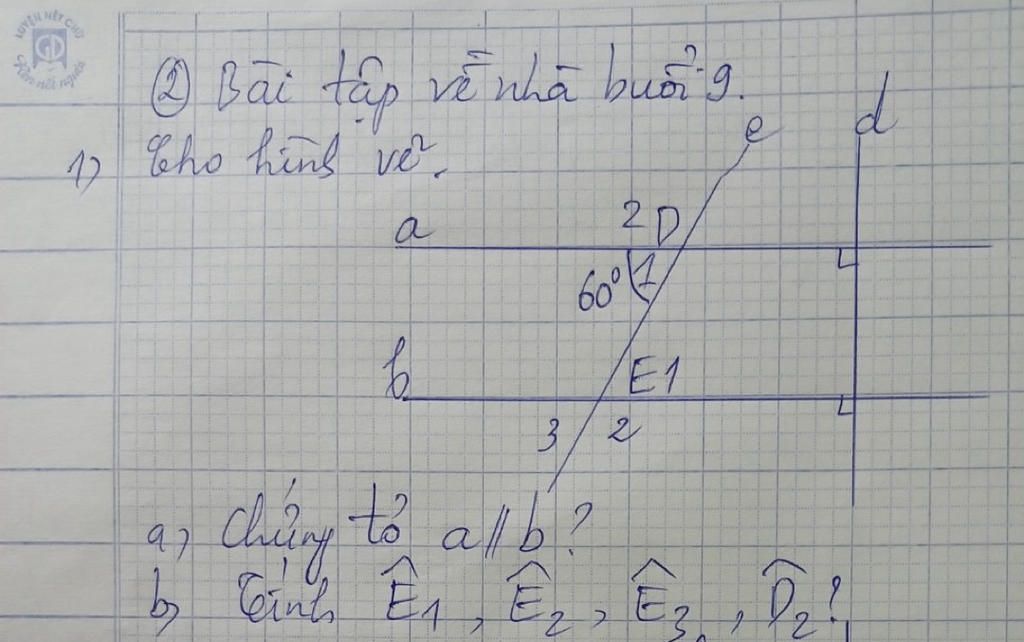 LUYỆN NÉT CHỮ
Rèn nết người
② Bài tập về nhà buổi 9.
1) Cho hình vẽ.
e d
a 2 D
60° 1
b E 1
3 2
a, Chứng tỏ a // b ?
b, Tính Ê1, Ê2, Ê3, D̂2 ?